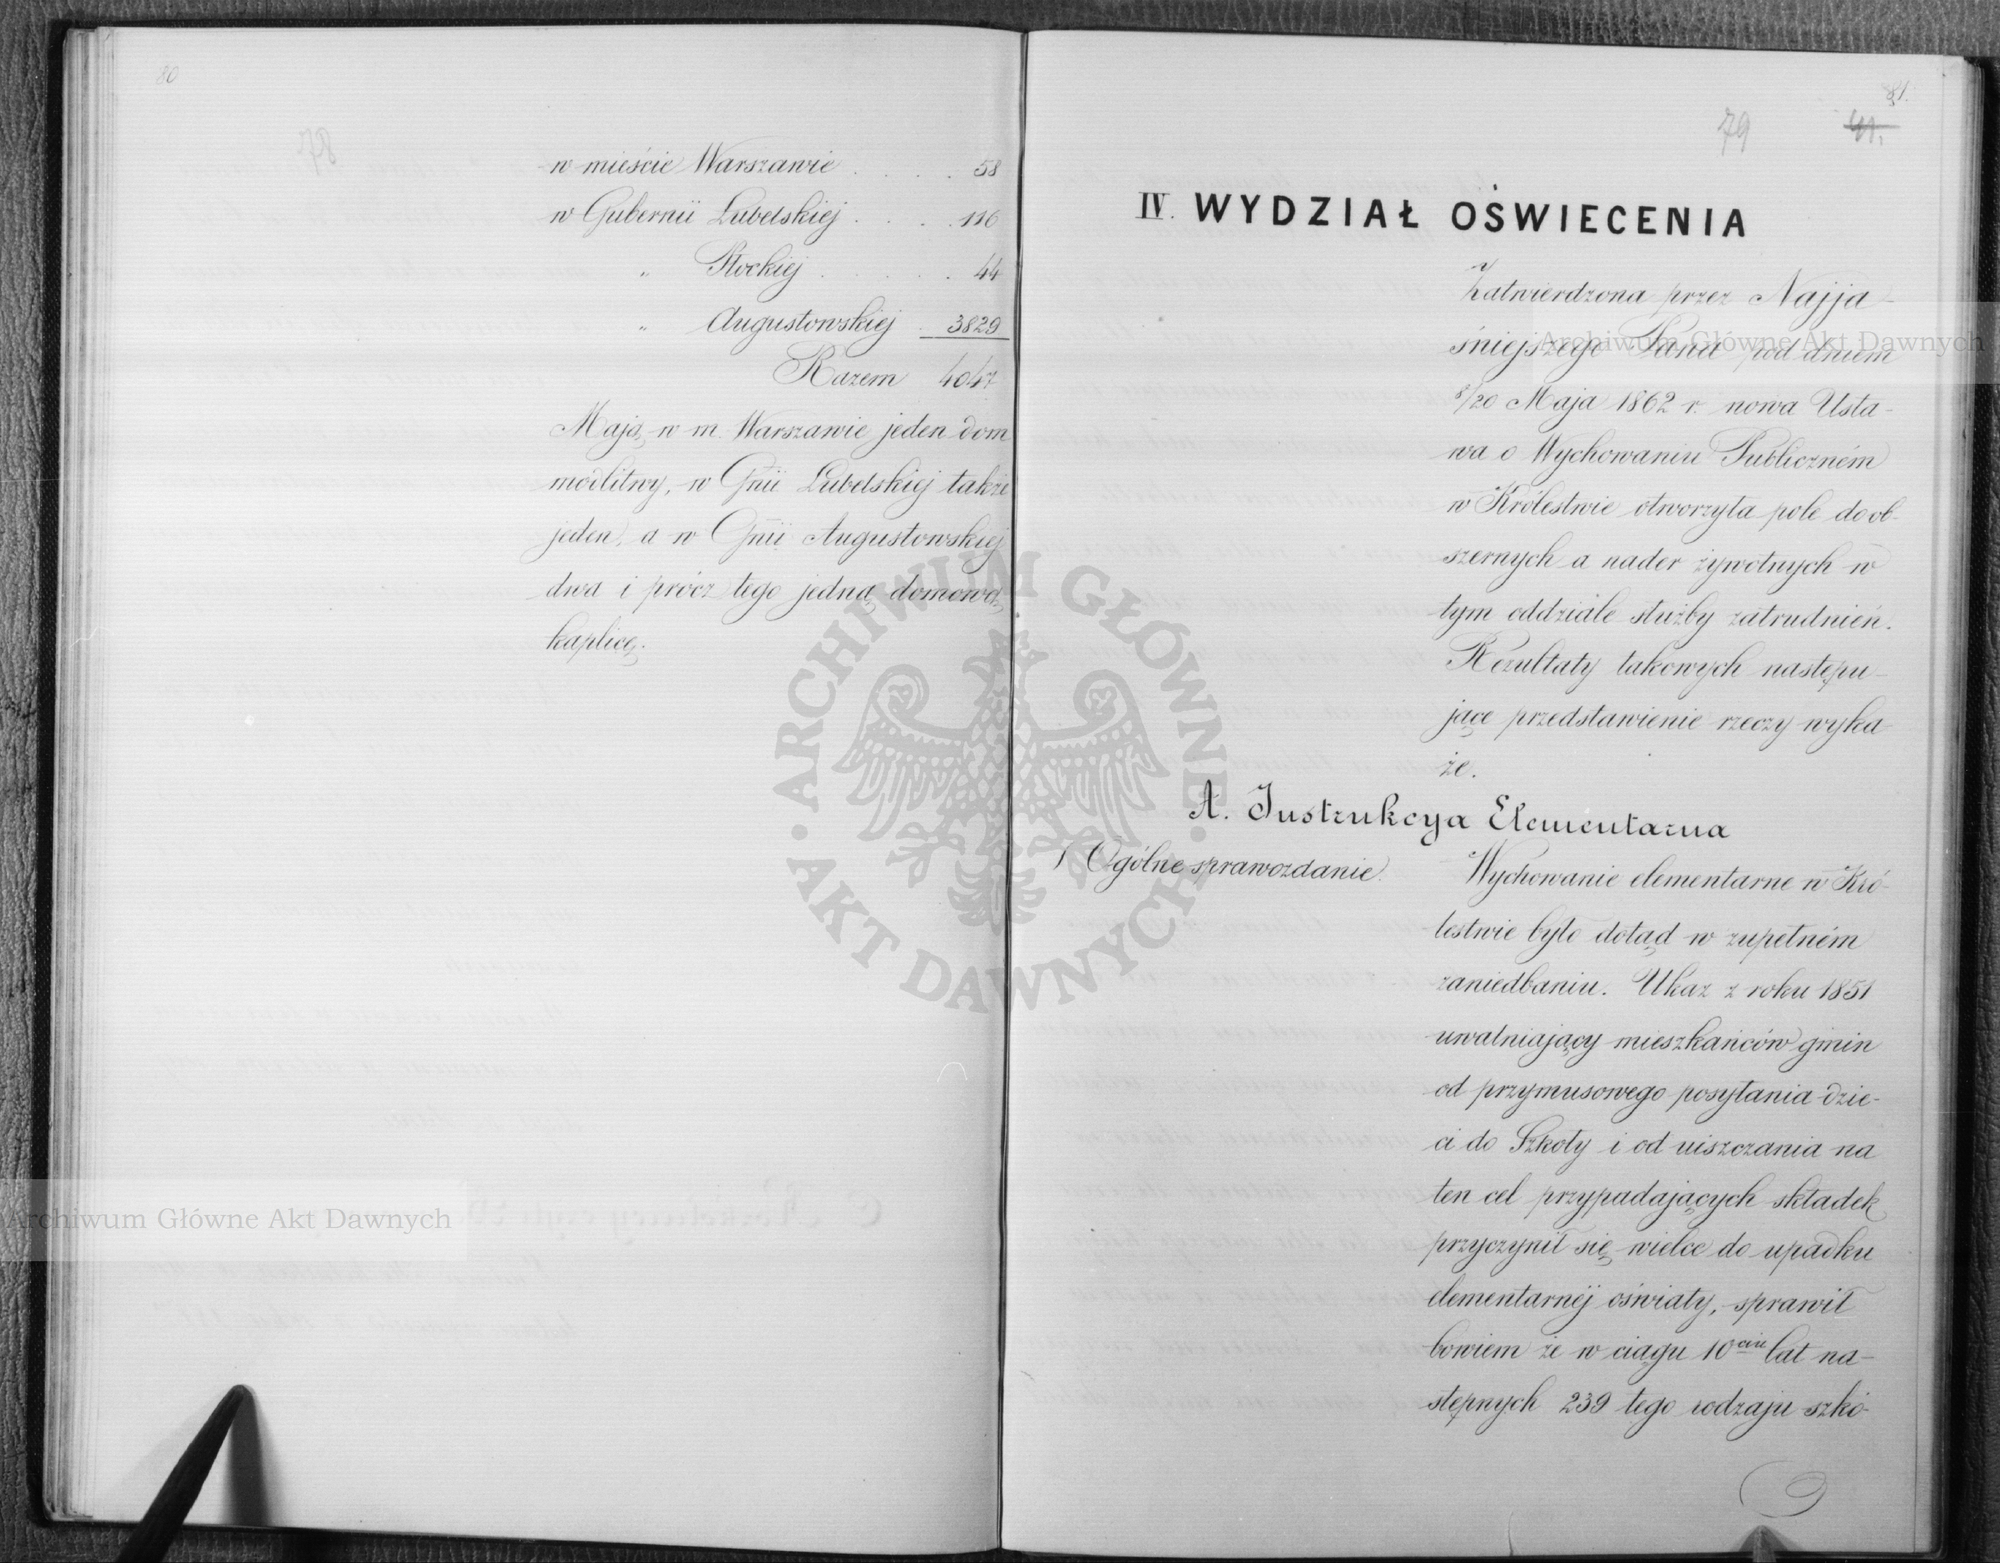 80
w mieście Warszawie . . . . 58
w Gubernii Lubelskiej . . . 116
" Płockiej . . . . . 44
" Augustowskiej . 3829
Razem 4047
Mają w m. Warszawie jeden dom
modlitwy, w Gnii Lubelskiej także
jeden, a w Gnii Augustowskiej
dwa i prócz tego jedną domową
kaplicę.
81.
79
41.
IV. WYDZIAŁ OŚWIECENIA
Zatwierdzona przez Najja-
śniejszego Pana pod dniem
8/20 Maja 1862 r. nowa Usta-
wa o Wychowaniu Publiczném
w Królestwie otworzyła pole do ob-
szernych a nader żywotnych w
tym oddziale służby zatrudnień.
Rezultaty takowych następu-
jące przedstawienie rzeczy wyka
że.
A. Instrukcya Elementarna
1 Ogólne sprawozdanie.
Wychowanie elementarne w Kró-
lestwie było dotąd w zupełném
zaniedbaniu. Ukaz z roku 1851
uwalniający mieszkańców gmin
od przymusowego posyłania dzie-
ci do Szkoły i od uiszczania na
ten cel przypadających składek
przyczynił się wielce do upadku
elementarnéj oświaty, sprawił
bowiem że w ciągu 10ciu lat na-
stępnych 239 tego rodzaju szkó-
ARCHIWUM GŁÓWNE
AKT DAWNYCH
Archiwum Główne Akt Dawnych
Archiwum Główne Akt Dawnych